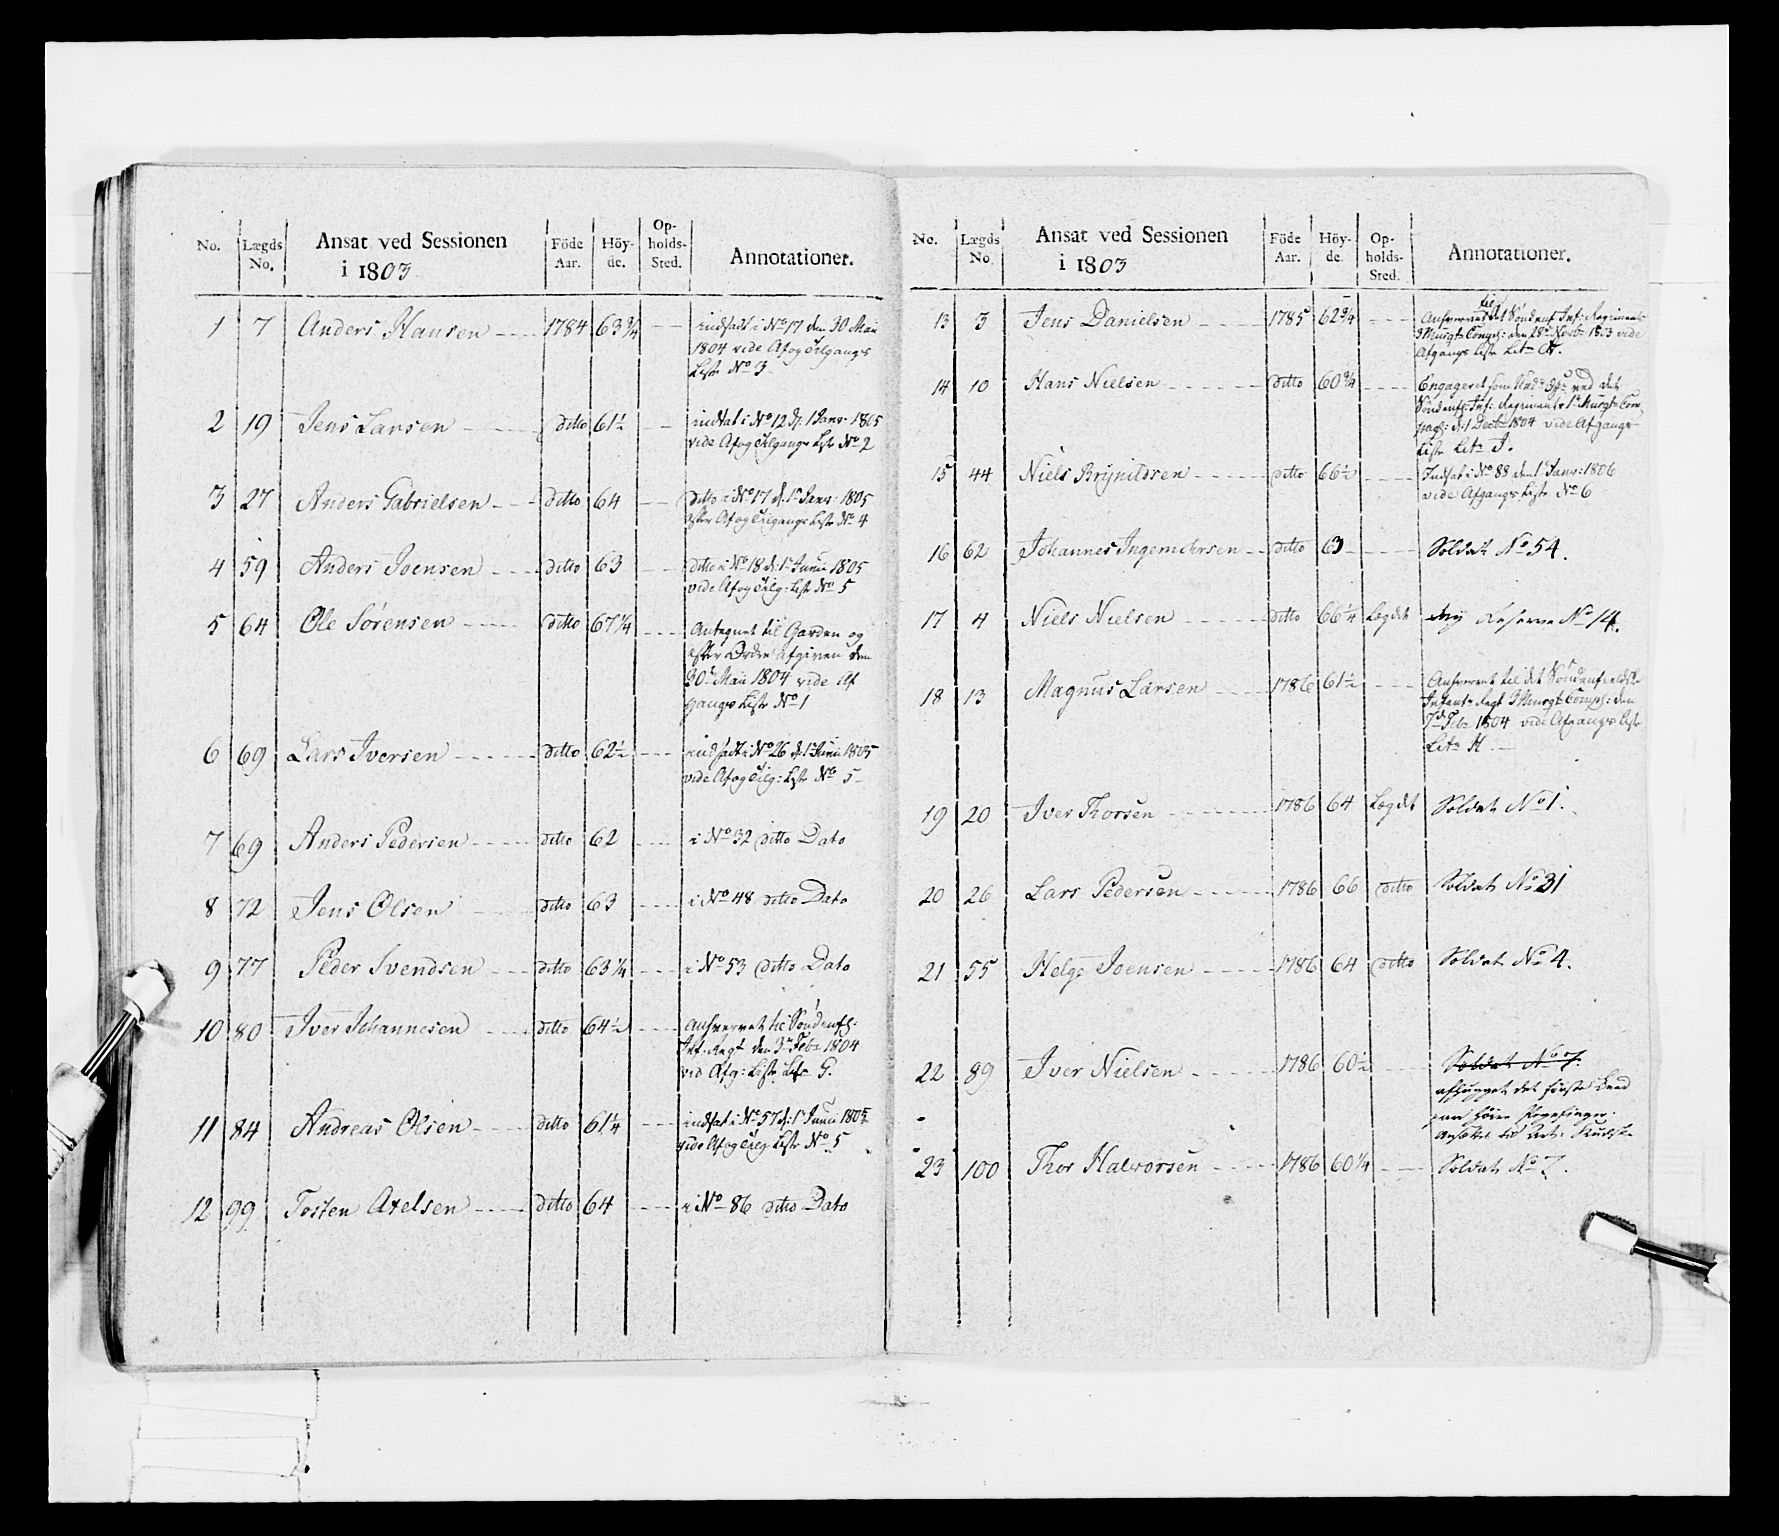 No. Lægds No. Ansat ved Sessionen i 1803 Föde Aar. Höy-de. Op-holds-Sted. Annotationer.
1 7 Anders Hansen 1784 63 3/4 indsadt i No 17 den 30 Maii
1804 vide Af og Tilgangs
Liste No 3
2 19 Jens Larsen ditto 61 1/2 indsat i No 12 d: 1 Janv: 1805
vide Af og Tilgangs Liste No 2
3 27 Anders Gabrielsen ditto 64 ditto i No 17 d. 1te Janv: 1805
efter Af og Tilgangs Liste No 4
4 59 Anders Joensen ditto 63 ditto i No 18 d: 1te Junii 1805
vide Af og Tilg: Liste No 5
5 64 Ole Sörensen ditto 67 1/4 Antegnet til Garden og
efter Ordre afgiven den
30te Maii 1804 vide Af
gangs Liste No 1
6 69 Lars Iversen ditto 62 1/2 indsadt i No 26 d: 1te Junii 1805
vide Af og Tilg: Liste No 5
7 69 Anders Pedersen ditto 62 i No 32 ditto Dato
8 72 Jens Olsen ditto 63 i No 48 ditto Dato
9 77 Peder Svendsen ditto 63 1/4 i No 53 ditto Dato
10 80 Iver Johannesen ditto 64 1/2 Anhvervet til Söndenfi:
Inf: Regt den 3te Febr 1804
vid Afg: Liste Litr G.
11 84 Andreas Olsen ditto 61 1/4 indsat i No 57 d: 1te Junii 1805
vide Af og Tilg Liste No 5
12 99 Tosten Axelsen ditto 64 i No 86 ditto Dato
No. Lægds No. Ansat ved Sessionen i 1803 Föde Aar. Höy-de. Op-holds-Sted. Annotationer.
13 3 Jens Danielsen 1785 62 3/4 til
Anhvervet det Söndenf Inf: Regiments
3 Musqt Comp: den 28 Novbr 1803 vide
Afgangs Liste Litr A.
14 10 Hans Nielsen ditto 60 3/4 Engageret som ved det
Söndenf: Inf: Regiments 1te Musqt Com
pag: d: 1 Decbr 1804 vide Afgangs
Liste Litr I.
15 44 Niels Brynildsen ditto 66 1/2 Indsat i No 88 den 1te Janv: 1806
vide Afgangs Liste No 6
16 62 Johannes Ingemdersen ditto 63 Soldat No 54.
17 4 Niels Nielsen ditto 66 1/4 Legdet Reserve No 14.
18 13 Magnus Larsen 1786 61 1/2 Anhvervet til det Söndenfieldske
Infant: Regt 3 Musqt Comp: den
7de Febr 1804 vide Afgangs Liste
Litr H
19 20 Iver Thorsen 1786 64 Legdet Soldat No 1.
20 26 Lars Pedersen 1786 66 ditto Soldat No 31
21 55 Helge Joensen 1786 64 ditto Soldat No 4.
22 89 Iver Nielsen 1786 60 1/2 Soldat No 7.
afhugget det förste Leed
paa höire Pegefinger.
Ansættes til
23 100 Thor Halvorsen 1786 60 1/4 Soldat No 7.